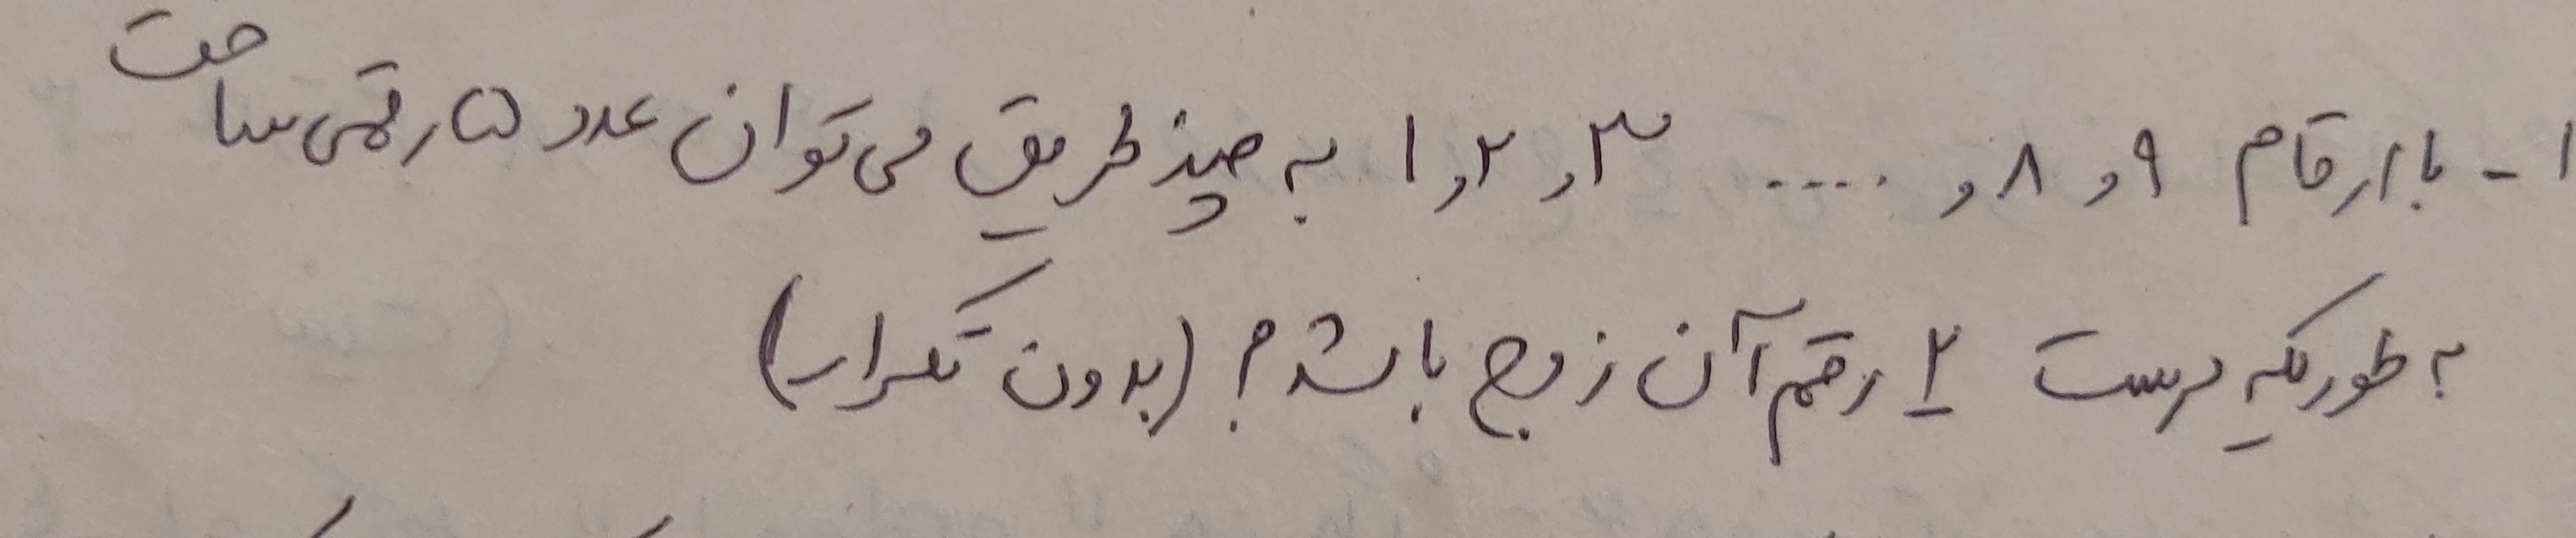 ۱- با ارقام ۹ و ۸ و .... ۳ و ۲ و ۱ به چند طریق می توان عدد ۵ رقمی ساخت
به طوریکه درست ۲ رقم آن زوج باشد؟ (بدون تکرار)